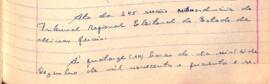 Ata da 245 sessão extraordinária do
Tribunal Regional Eleitoral do Estado de
Minas Gerais.
Às quatorze (14) horas do dia
Dezembro de mil novecentos e quarenta e se